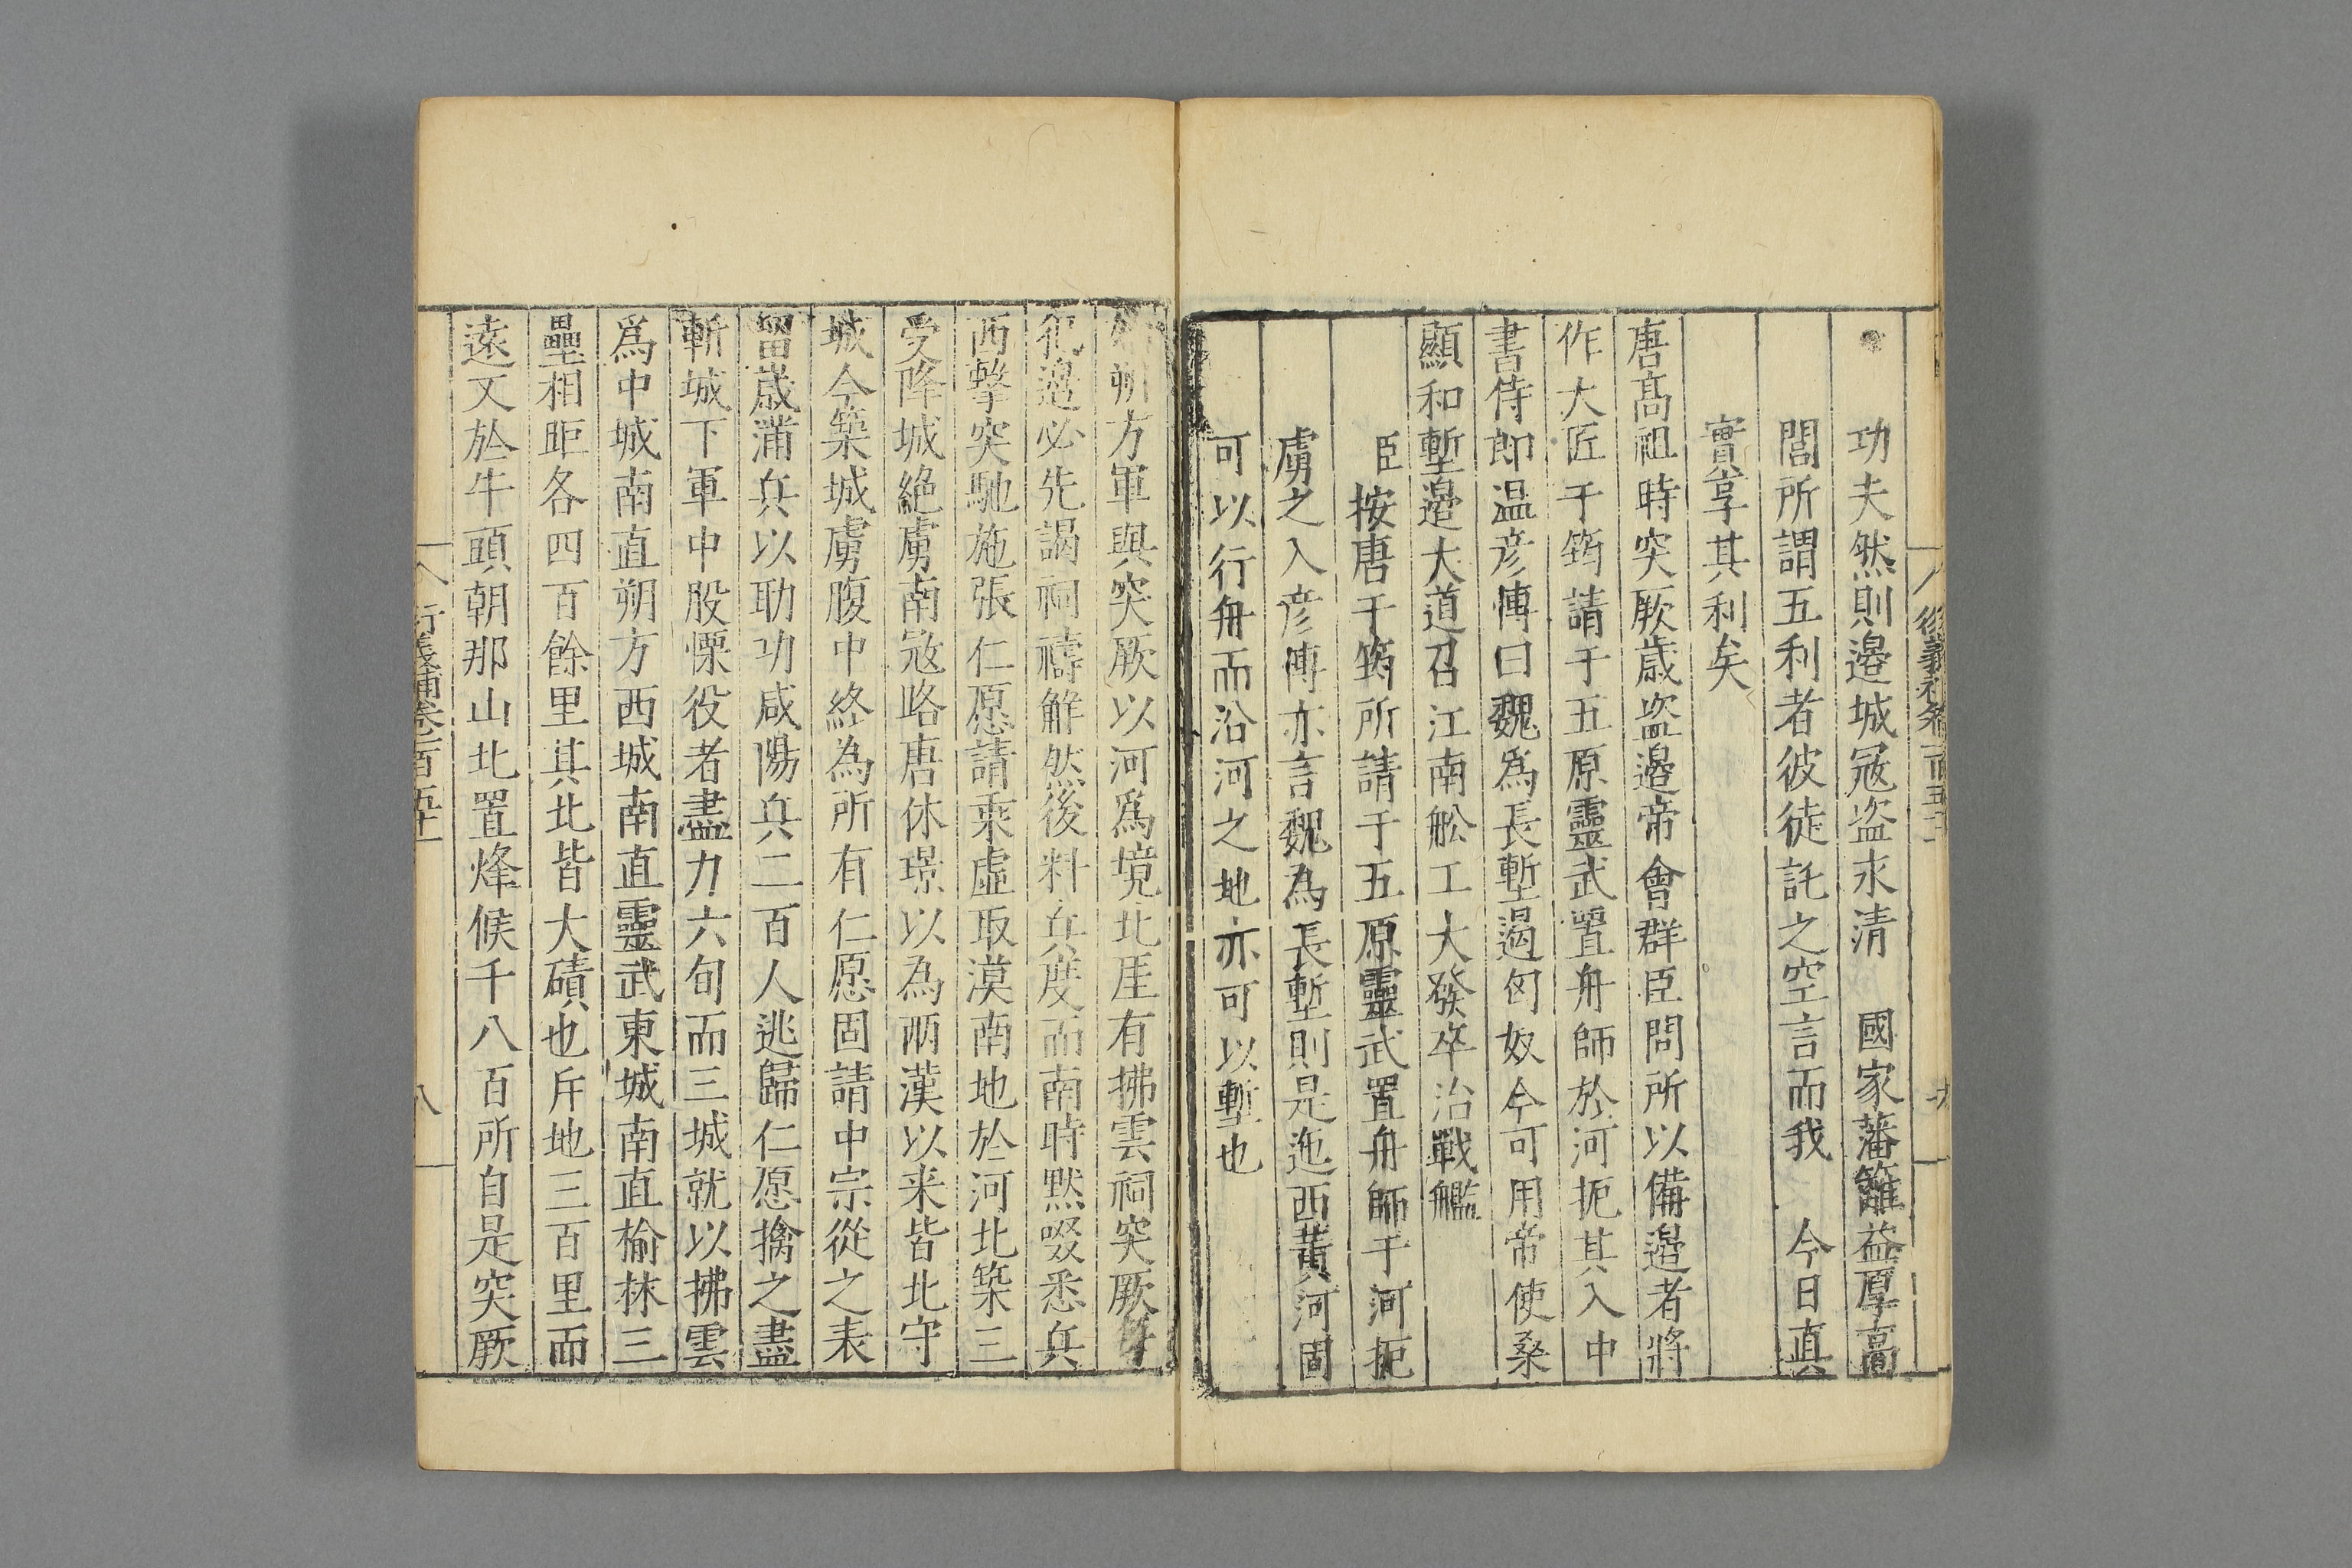 功夫然則邉城冦盗永清　國家藩籬益厚高
閭所謂五利者彼徒託之空言而我　今日真
實享其利矣
唐髙祖時突厥歳盗邉帝會群臣問所以備邉者將
作大匠于筠請于五原靈武置舟師於河扼其入中
書侍郎温彦博曰魏爲長塹遏匈奴今可用帝使桑
顯和塹邉大道召江南舩工大發卒治戰艦
臣按唐于筠所請于五原靈武置舟師于河扼
虜之入彦博亦言魏為長塹則是迤西黄河固
可以行舟而沿河之地亦可以塹也
朔方軍與突厥以河爲境北厓有拂雲祠突厥
犯邉必先謁祠禱觧然後料兵度而南時黙啜悉兵
西擊突馳施張仁愿請乘虛取漠南地於河北築三
受降城絶虜南冦路唐休璟以為兩漢以来皆北守
城今築城虜腹中終為所有仁愿固請中宗從之表
留歳滿兵以助功咸陽兵二百人逃歸仁愿擒之盡
斬城下軍中股慄役者盡力六旬而三城就以拂雲
爲中城南直朔方西城南直靈武東城南直榆林三
壘相距各四百餘里其北皆大磧也斥地三百里而
遠又於牛頭朝那山北置烽候千八百所自是突厥
衍義補卷百五十一
八